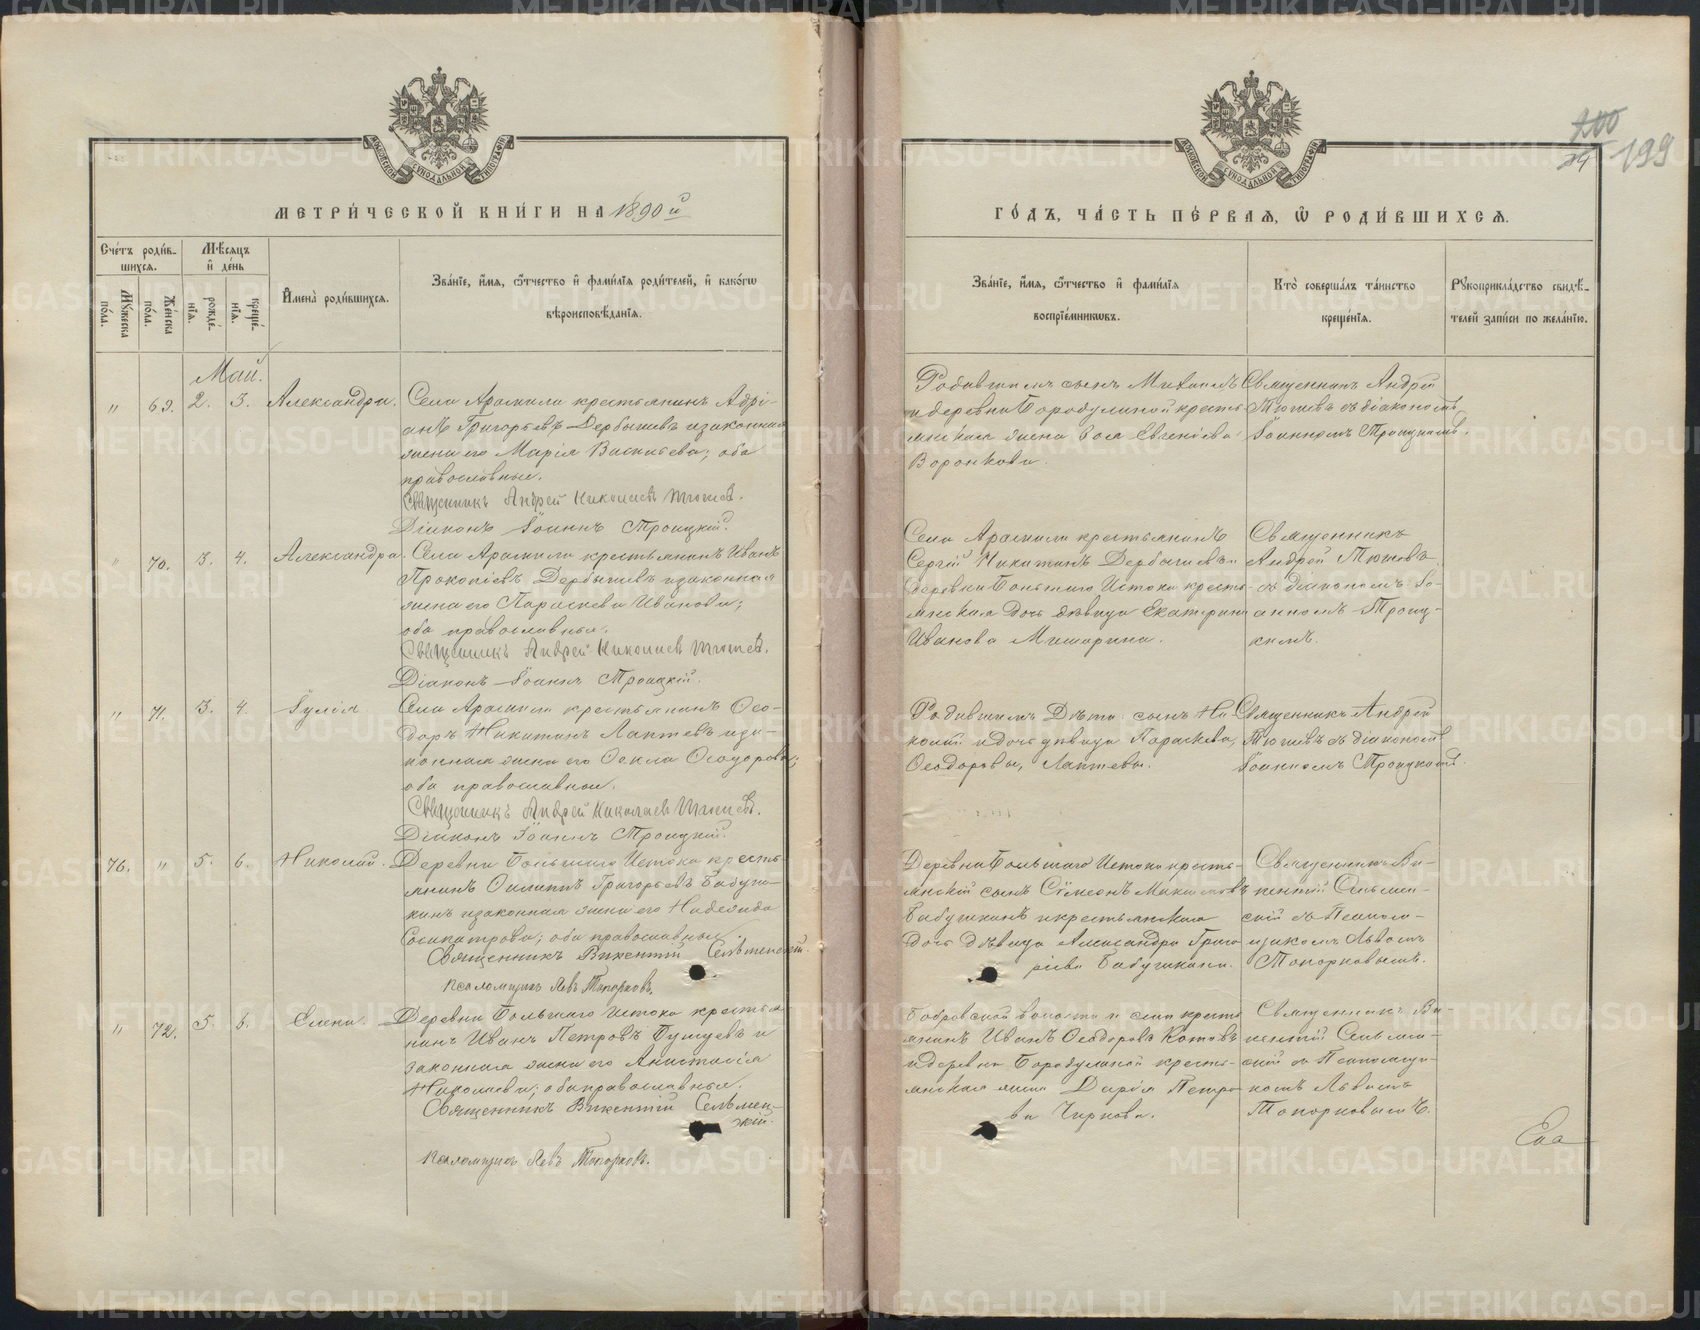 МЕТРИ́ЧЕСКОЙ КНИ́ГИ НА 1890 й
Сче́тъ роди́в-
шихся.
Мѣ́сяцъ
и де́нь
Му́жеска по́ла.
Же́нска по́ла.
рожде́-нія.
креще́-нія.
Имена̀ роди́вшихся.
Зва́ніе, и́мя, ѻ҆́тчество и фами́лія роди́телей, и како́гѡ
вѣроисповѣ́данія.
Май.
" 69. 2. 3. Александра. Села Арамили крестьянинъ Адрі-
анъ Григорьевъ Дербышевъ и законная
жена его Марія Васильева; оба
православные.
Священникъ Андрей Николаевъ Тютевъ.
Діаконъ Іоаннъ Троицкій.
" 70. 3. 4. Александра. Села Арамили крестьянинъ Иванъ
Прокопіевъ Дербышевъ и законная
жена его Параскева Иванова;
оба православные.
Священникъ Андрей Николаевъ Тютевъ.
Діаконъ Іоаннъ Троицкій.
" 71. 3. 4. Іулія Села Арамили крестьянинъ Ѳео-
доръ Никитинъ Лаптевъ и за-
конная жена его Ѳекла Ѳеодорова;
оба православные.
Священникъ Андрей Николаевъ Тютевъ.
Діаконъ Іоаннъ Троицкій.
76. " 5. 6. Николай. Деревни Большаго Истока кресть-
янинъ Филиппъ Григорьевъ Бабуш-
кинъ и законная жена его Надежда
Сосипатрова; оба православные.
Священникъ Викентій Сельменскій.
Псаломщикъ Левъ Топорковъ.
" 72. 5. 6. Елена. Деревни Большаго Истока крестья-
нинъ Иванъ Петровъ и
законная жена его Анастасія
Николаева; оба православные.
Священникъ Викентій Сельмен-
скій.
Псаломщикъ Левъ Топорковъ.
200
24
199
ГО́ДЪ, ЧА́СТЬ ПЕ́РВАЯ, Ѡ҆ РОДИ́ВШИХСЯ.
Зва́ніе, и́мя, ѻ҆́тчество и фами́лія
воспріе́мниковъ.
Кто̀ соверша́лъ та́инство
креще́нія.
Рукоприкла́дство свидѣ́-
телей за́писи по жела́нію.
Родившимъ сынъ Михаилъ
и деревни Бородулиной кресть-
янская жена Зоя Евгеніева
Воронкова.
Священникъ Андрей
Тютевъ съ діакономъ
Іоанномъ Троицкимъ.
Села Арамили крестьянинъ
Сергій Никитинъ Дербышевъ и
деревни Большаго Истока кресть-
янская дочь дѣвица Екатерина
Иванова Мишарина.
Священникъ
Андрей Тютевъ
съ діакономъ Іо-
анномъ Троиц-
кимъ.
Родившимъ дѣти: сынъ Ни-
колай и дочь дѣвица Параскева,
Ѳеодоровы, Лаптевы.
Священникъ Андрей
Тютевъ съ діакономъ
Іоанномъ Троицкимъ.
Деревни Большаго Истока кресть-
янскій сынъ Сѵмеонъ
Бабушкинъ и крестьянская
дочь дѣвица Александра Григо-
рьева Бабушкина.
Священникъ Ви-
кентій Сельмен-
скій съ Псалом-
щикомъ Львомъ
Топорковымъ.
Бобровской волости и села кресть-
янинъ Иванъ Ѳеодоровъ Котовъ
и деревни Бородулиной кресть-
янская жена Дарія Петро-
ва Чиркова.
Священникъ Ви-
кентій Сельмен-
скій съ Псаломщи-
комъ Львомъ
Топорковымъ.
METRIKI.GASO-URAL.RU